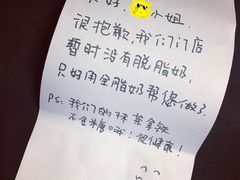 好，小姐，
很抱歉，我们门店
暂时没有脱脂奶，
只好用全脂奶帮您做了
PS：我们的抹茶拿铁
不含糖哦！很健康！